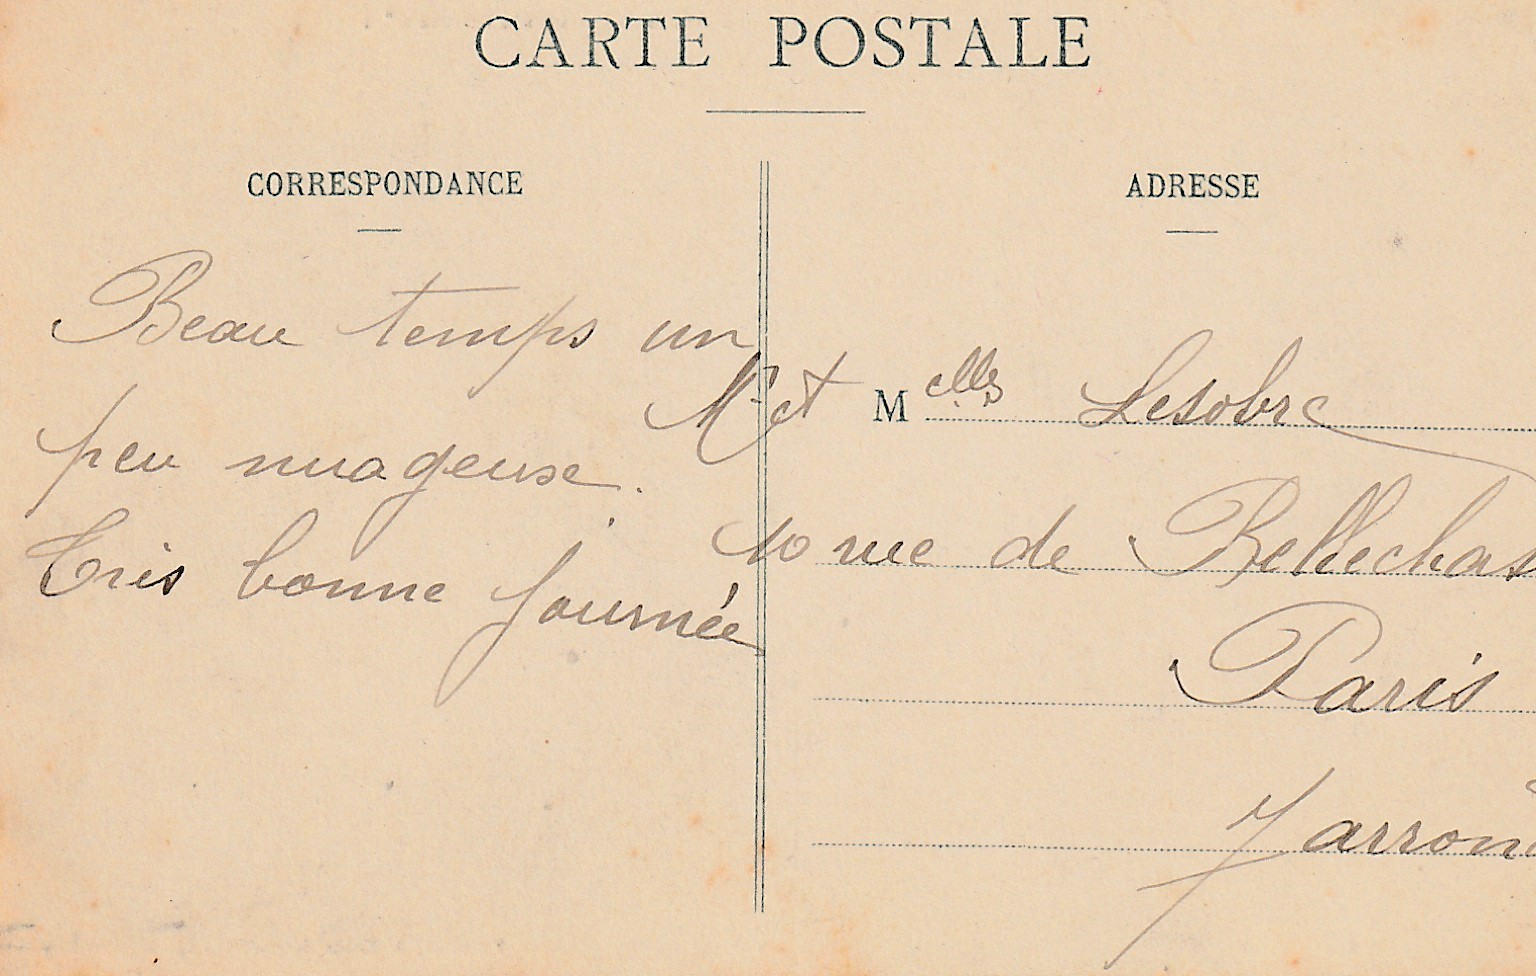 CARTE POSTALE
CORRESPONDANCE
Beau temps un
peu nuageuse.
Très bonne journée
ADRESSE
Mr et Melles Lesobre
10 rue de Bellechas
Paris
7 arrond